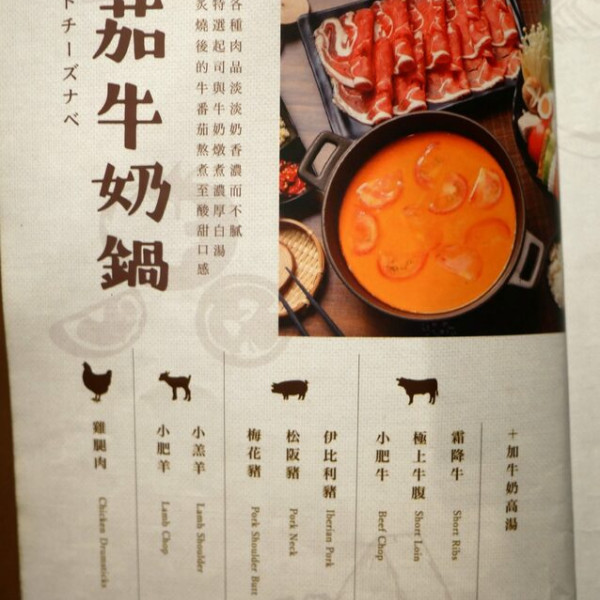 各種肉品淡淡奶香濃而不膩
特選起司與牛奶燉煮濃厚白湯
炙燒後的牛番茄熬煮至酸甜口感
茄牛奶鍋
トチーズナベ
+加牛奶高湯
霜降牛 Short Ribs
極上牛腹 Short Loin
小肥牛 Beef Chop
伊比利豬 Iberian Pork
松阪豬 Pork Neck
梅花豬 Pork Shoulder Butt
小羔羊 Lamb Shoulder
小肥羊 Lamb Chop
雞腿肉 Chicken Drumsticks